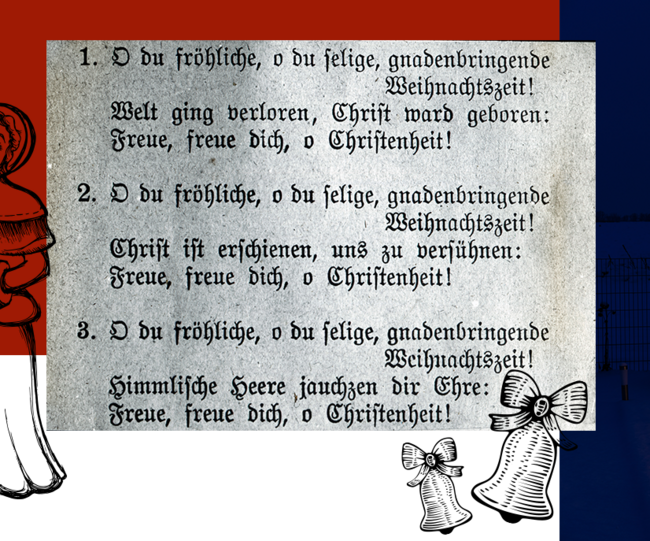 1. O du fröhliche, o du selige, gnadenbringende
Weihnachtszeit!
Welt ging verloren, Christ ward geboren:
Freue, freue dich, o Christenheit!
2. O du fröhliche, o du selige, gnadenbringende
Weihnachtszeit!
Christ ist erschienen, uns zu versühnen:
Freue, freue dich, o Christenheit!
3. O du fröhliche, o du selige, gnadenbringende
Weihnachtszeit!
Himmlische Heere jauchzen dir Ehre:
Freue, freue dich, o Christenheit!